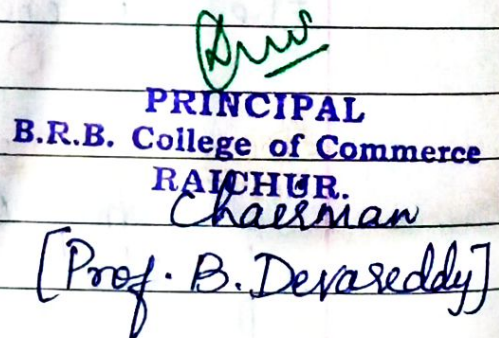 PRINCIPAL
B.R.B. College of Commerce
RAICHUR.
Chairman
[Prof. B. Devareddy]